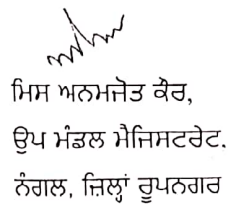 ਮਿਸ ਅਨਮਜੋਤ ਕੌਰ,
ਉਪ ਮੰਡਲ ਮੈਜਿਸਟਰੇਟ.
ਨੰਗਲ, ਜ਼ਿਲ੍ਹਾਂ ਰੂਪਨਗਰ